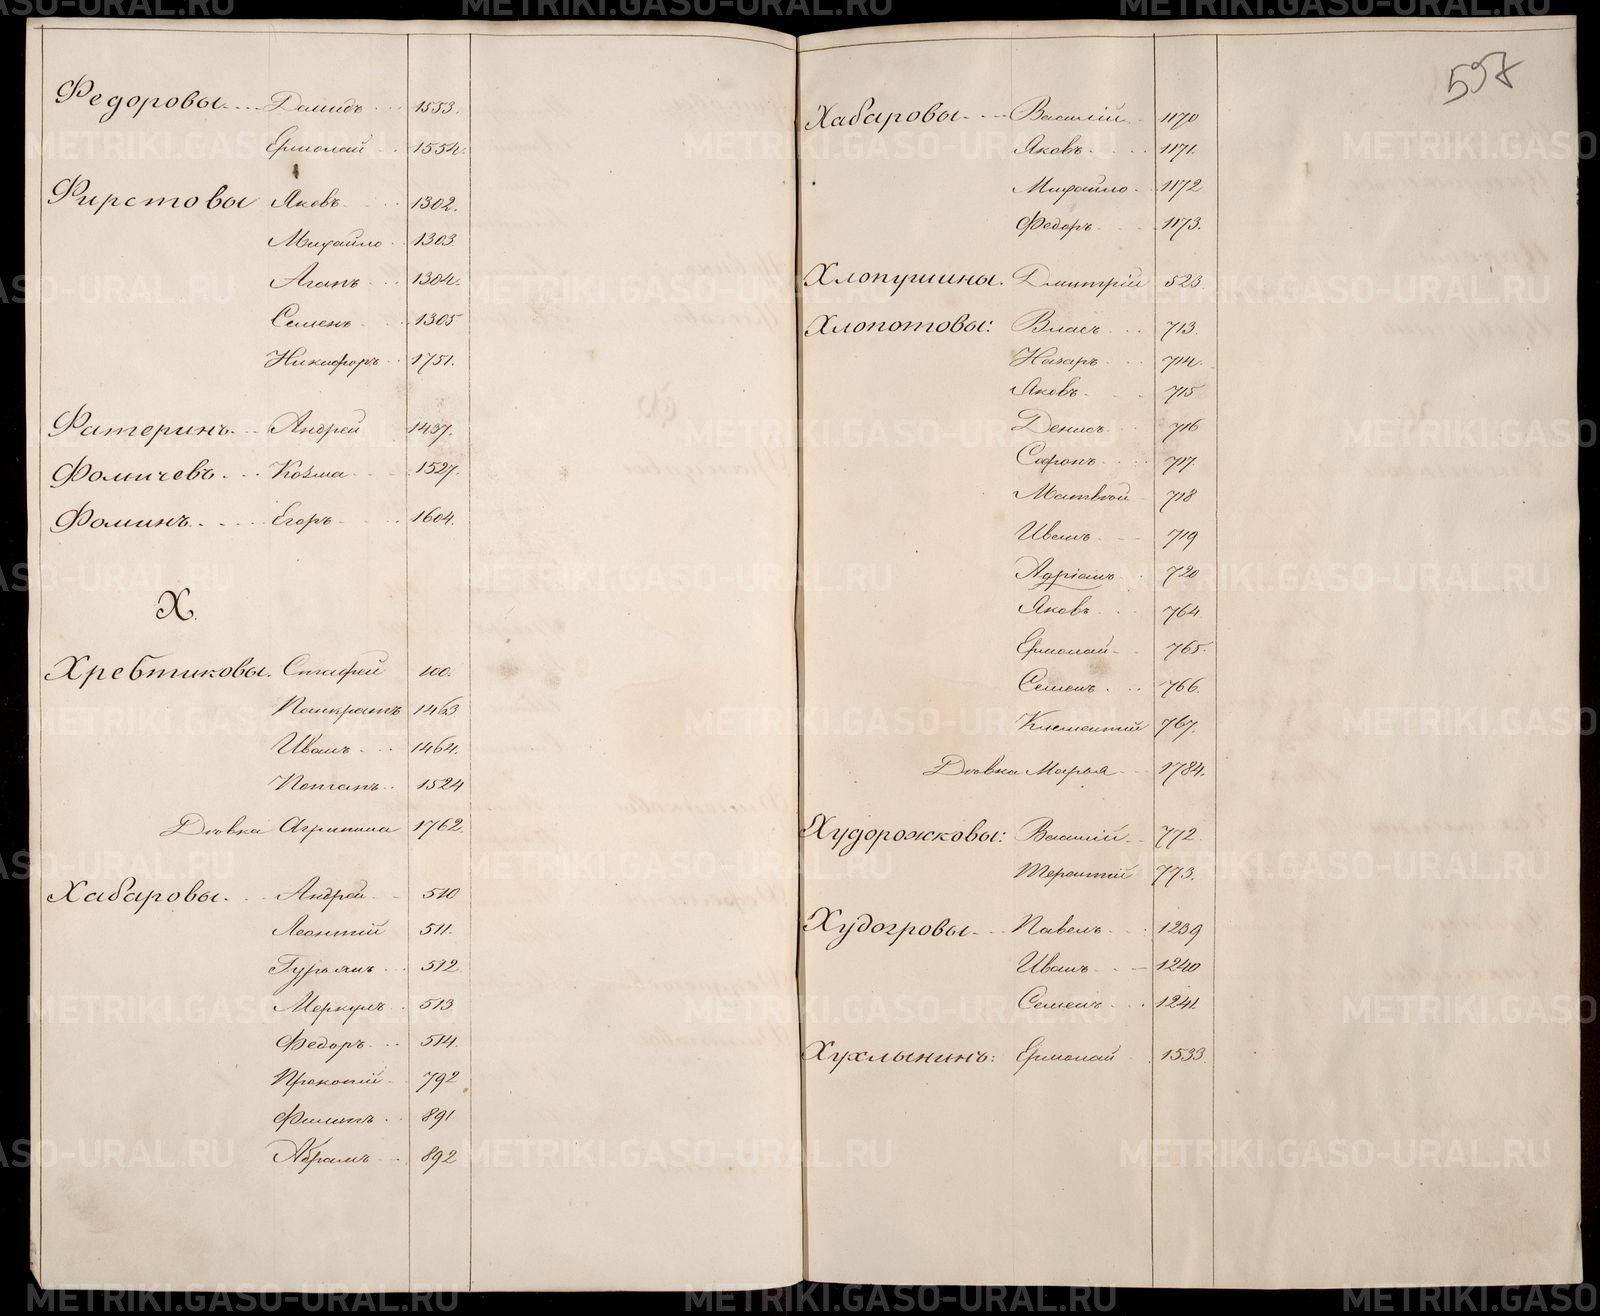 Федоровы Давидъ 1553.
Ермолай 1554.
Фирстовы Яковъ 1302.
Михайло 1303.
Агапъ 1304.
Семенъ 1305
Никифоръ 1751.
Фатеринъ Андрей 1437.
Фомичевъ Козма 1527.
Фоминъ Егоръ 1604.
Х.
Хребтиковы. Стафей 100.
Панкратъ 1463
Иванъ 1464.
Потапъ 1524
Дѣвка Агрипина 1762.
Хабаровы. Андрей 510
Леонтій 511.
Гурьянъ 512
Меркулъ 513
Федоръ 514.
Прокопій 792
Филипъ 891
Абрамъ 892
597
Хабаровы Василій 1170
Яковъ 1171.
Михайло 1172
Федоръ 1173.
Хлопушины. Дмитрій 523.
Хлопотовы: Власъ 713.
Назаръ 714.
Яковъ 715
Денисъ 716
Софонъ 717.
Матвѣй 718
Иванъ 719
Адріанъ 720
Яковъ 764
Ермолай 765.
Семенъ 766.
Климентій 767.
Дѣвка Марья 1784.
Худорожковы: Василій 772
Терентій 773.
Худогровы Павелъ 1239
Иванъ 1240
Семенъ 1241.
Хухлынинъ: Ермолай 1533.
METRIKI.GASO-URAL.RU